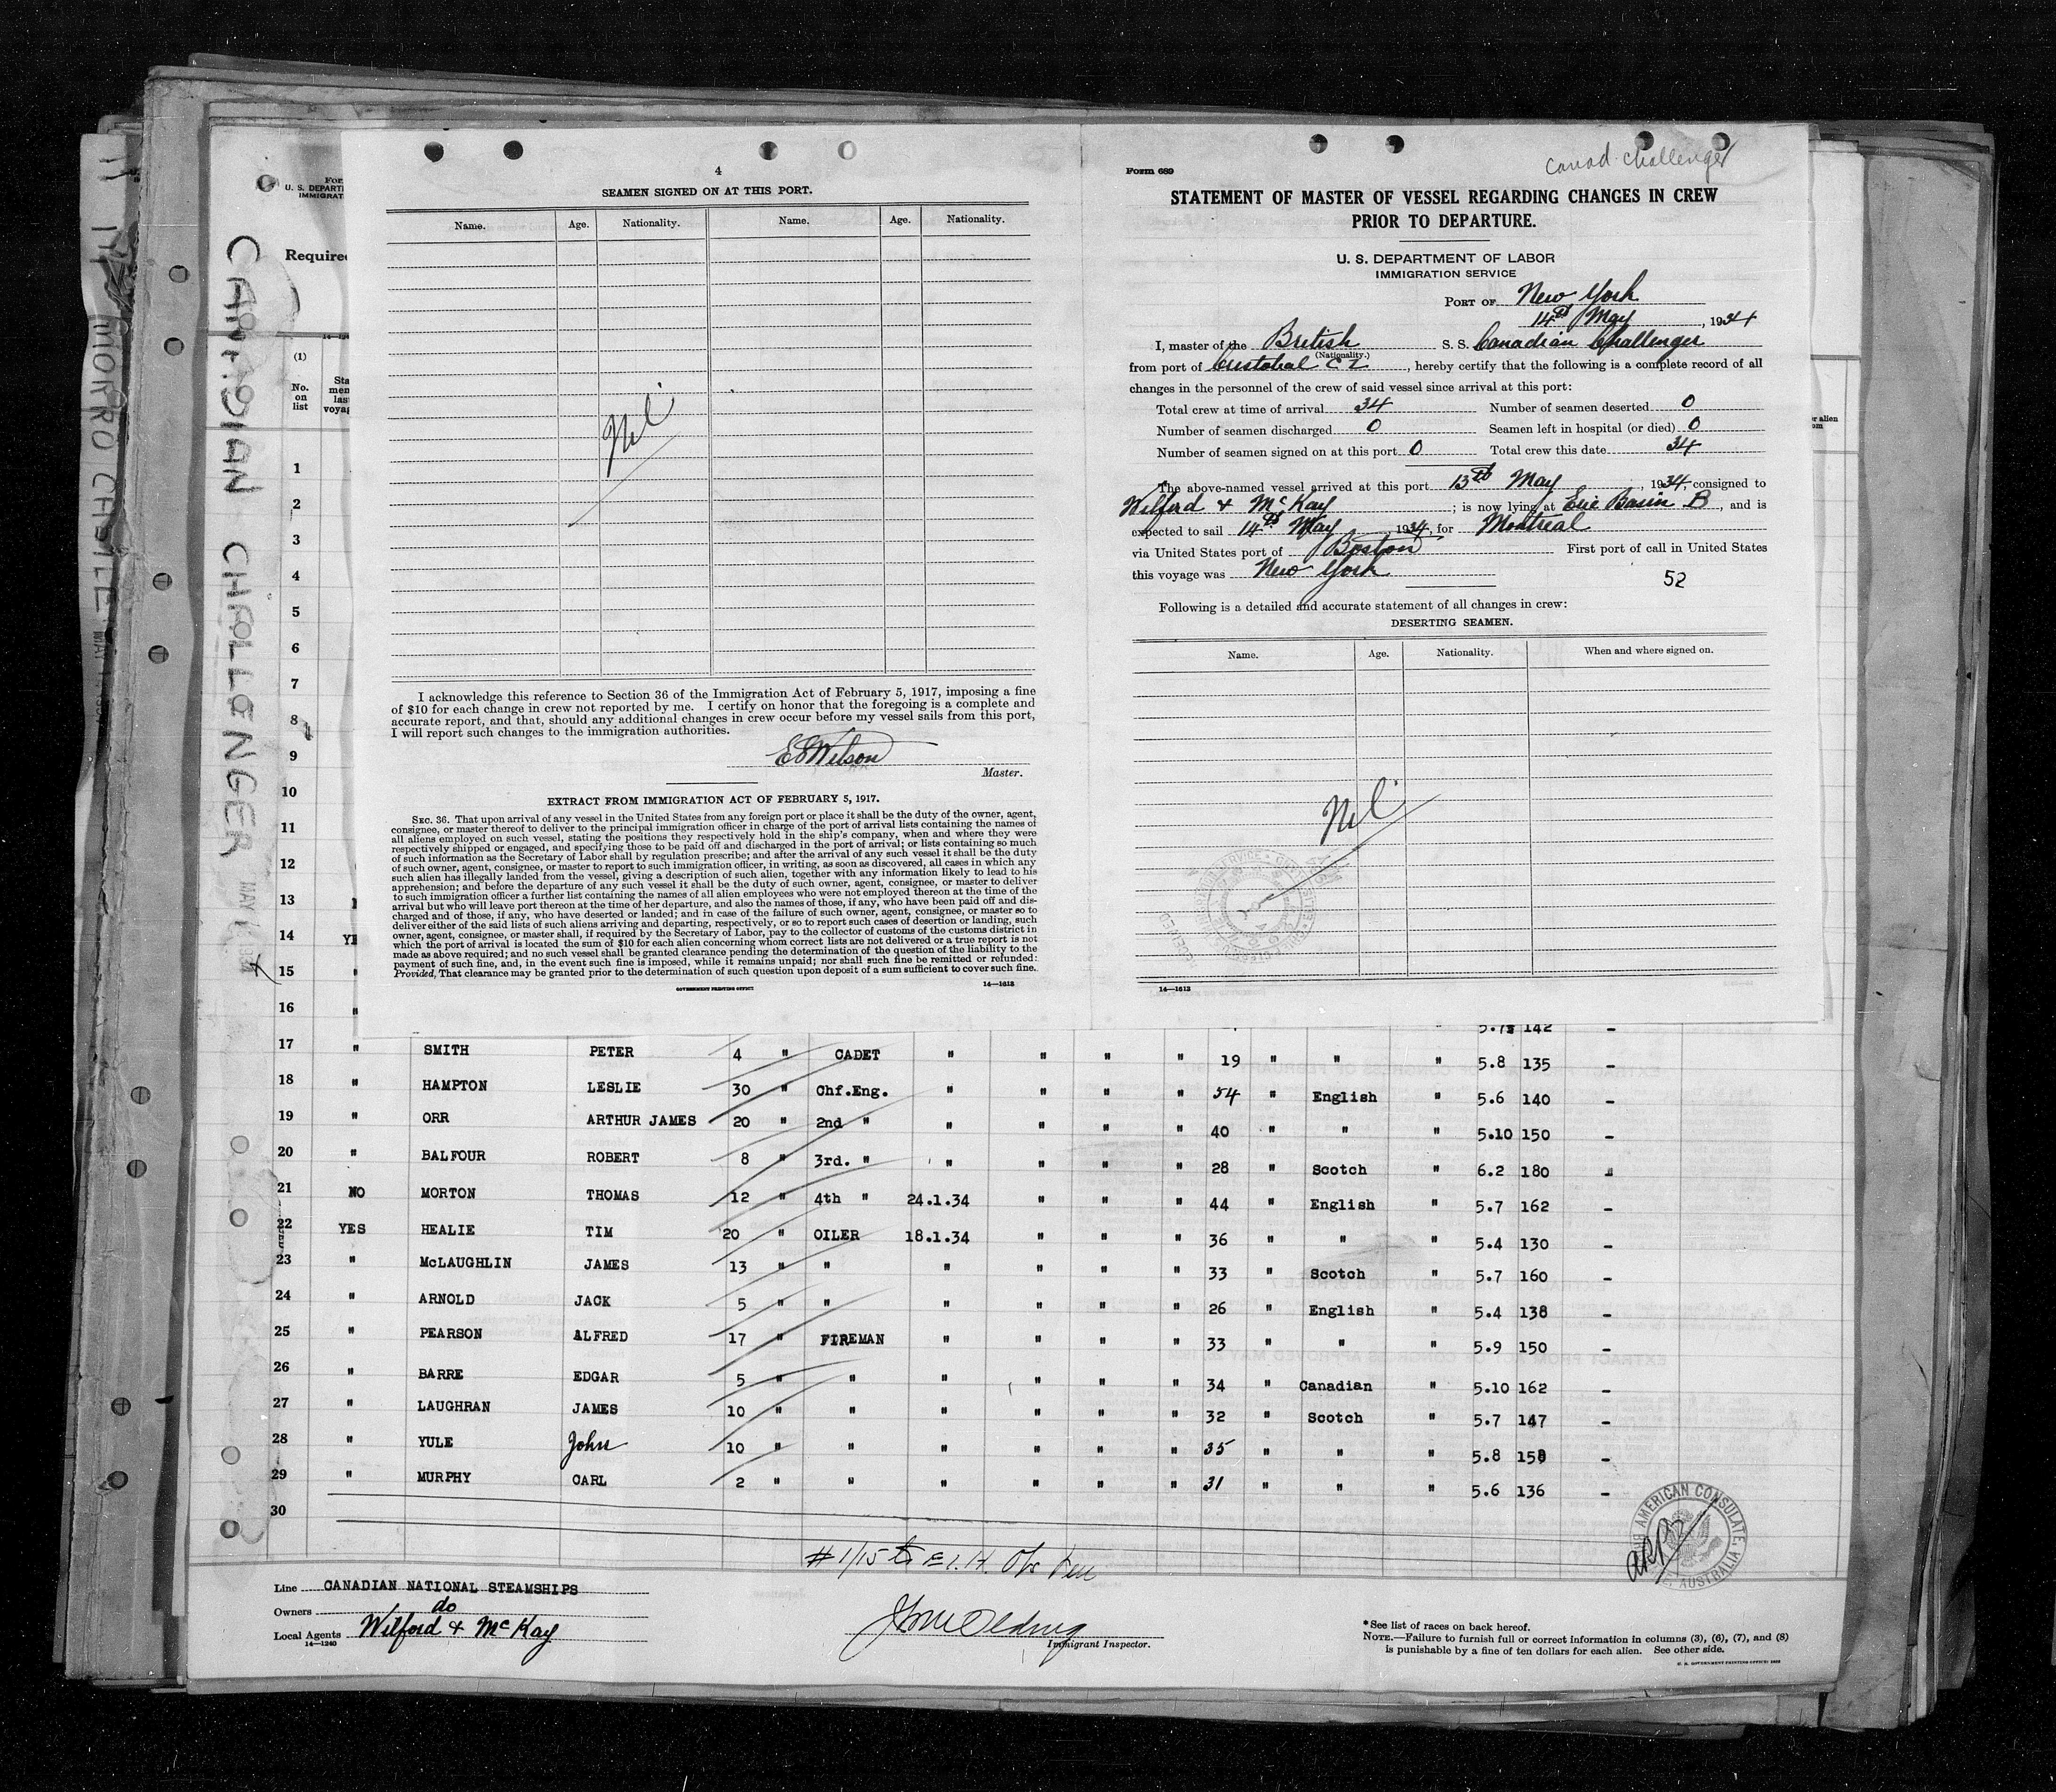 MORRO CASTLE
CANADIAN CHALLENGER
U. S. DEPARTM
IMMIGRAT
Required
(1)
No.
on
list
1
2
3
4
5
6
7
8
9
10
11
12
13
14
15
16
4
SEAMEN SIGNED ON AT THIS PORT.
Name. Age. Nationality. Name. Age. Nationality.
Nil
I acknowledge this reference to Section 36 of the Immigration Act of February 5, 1917, imposing a fine
of $10 for each change in crew not reported by me. I certify on honor that the foregoing is a complete and
accurate report, and that, should any additional changes in crew occur before my vessel sails from this port,
I will report such changes to the immigration authorities.
E S Wilson
Master.
EXTRACT FROM IMMIGRATION ACT OF FEBRUARY 5, 1917.
SEC. 36. That upon arrival of any vessel in the United States from any foreign port or place it shall be the duty of the owner, agent,
consignee, or master thereof to deliver to the principal immigration officer in charge of the port of arrival lists containing the names of
all aliens employed on such vessel, stating the positions they respectively hold in the ship's company, when and where they were
respectively shipped or engaged, and specifying those to be paid off and discharged in the port of arrival; or lists containing so much
of such information as the Secretary of Labor shall by regulation prescribe; and after the arrival of any such vessel it shall be the duty
of such owner, agent, consignee, or master to report to such immigration officer, in writing, as soon as discovered, all cases in which any
such alien has illegally landed from the vessel, giving a description of such alien, together with any information likely to lead to his
apprehension; and before the departure of any such vessel it shall be the duty of such owner, agent, consignee, or master to deliver
to such immigration officer a further list containing the names of all alien employees who were not employed thereon at the time of the
arrival but who will leave port thereon at the time of her departure, and also the names of those, if any, who have been paid off and dis-
charged and of those, if any, who have deserted or landed; and in case of the failure of such owner, agent, consignee, or master so to
deliver either of the said lists of such aliens arriving and departing, respectively, or so to report such cases of desertion or landing, such
owner, agent, consignee, or master shall, if required by the Secretary of Labor, pay to the collector of customs of the customs district in
which the port of arrival is located the sum of $10 for each alien concerning whom correct lists are not delivered or a true report is not
made as above required; and no such vessel shall be granted clearance pending the determination of the question of the liability to the
payment of such fine, and, in the event such fine is imposed, while it remains unpaid; nor shall such fine be remitted or refunded:
Provided, That clearance may be granted prior to the determination of such question upon deposit of a sum sufficient to cover such fine.
GOVERNMENT PRINTING OFFICE 14—1613
Canad. Challenger
Form 689
STATEMENT OF MASTER OF VESSEL REGARDING CHANGES IN CREW
PRIOR TO DEPARTURE.
U. S. DEPARTMENT OF LABOR
IMMIGRATION SERVICE
PORT OF New York
14th May, 1934
I, master of the British S. S. Canadian Challenger
(Nationality.)
from port of Cristobal C Z, hereby certify that the following is a complete record of all
changes in the personnel of the crew of said vessel since arrival at this port:
Total crew at time of arrival 34 Number of seamen deserted 0
Number of seamen discharged 0 Seamen left in hospital (or died) 0
Number of seamen signed on at this port 0 Total crew this date 34
The above-named vessel arrived at this port 13th May, 1934, consigned to
Wilford & McKay; is now lying at Erie Basin B, and is
expected to sail 14th May 1934, for Montreal
via United States port of Boston First port of call in United States
this voyage was New York
52
Following is a detailed and accurate statement of all changes in crew:
DESERTING SEAMEN.
Name. Age. Nationality. When and where signed on.
Nil
14—1613
5.7 142
17 " SMITH PETER 4 " CADET " " " " 19 " " " 5.8 135
18 " HAMPTON LESLIE 30 " Chf.Eng. " " " " 54 " English " 5.6 140 -
19 " ORR ARTHUR JAMES 20 " 2nd " " " " " 40 " " " 5.10 150 -
20 " BALFOUR ROBERT 8 " 3rd. " " " " " 28 " Scotch " 6.2 180
21 NO MORTON THOMAS 12 " 4th " 24.1.34 " " " 44 " English " 5.7 162 -
22 YES HEALIE TIM 20 " OILER 18.1.34 " " " 36 " " " 5.4 130 -
23 " McLAUGHLIN JAMES 13 " " " " " " 33 " Scotch " 5.7 160 -
24 " ARNOLD JACK 5 " " " " " " 26 " English " 5.4 138 -
25 " PEARSON ALFRED 17 " FIREMAN " " " " 33 " " " 5.9 150 -
26 " BARRE EDGAR 5 " " " " " " 34 " Canadian " 5.10 162 -
27 " LAUGHRAN JAMES 10 " " " " " " 32 " Scotch " 5.7 147 -
28 " YULE John 10 " " " " " " 35 " " " 5.8 -
29 " MURPHY CARL 2 " " " " " " 31 " " " 5.6 136 -
30
AMERICAN CONSULATE
AUSTRALIA
Line CANADIAN NATIONAL STEAMSHIPS
Owners do
Local Agents Wilford & McKay
14—1240
Immigrant Inspector.
*See list of races on back hereof.
NOTE.—Failure to furnish full or correct information in columns (3), (6), (7), and (8)
is punishable by a fine of ten dollars for each alien. See other side.
U. S. GOVERNMENT PRINTING OFFICE